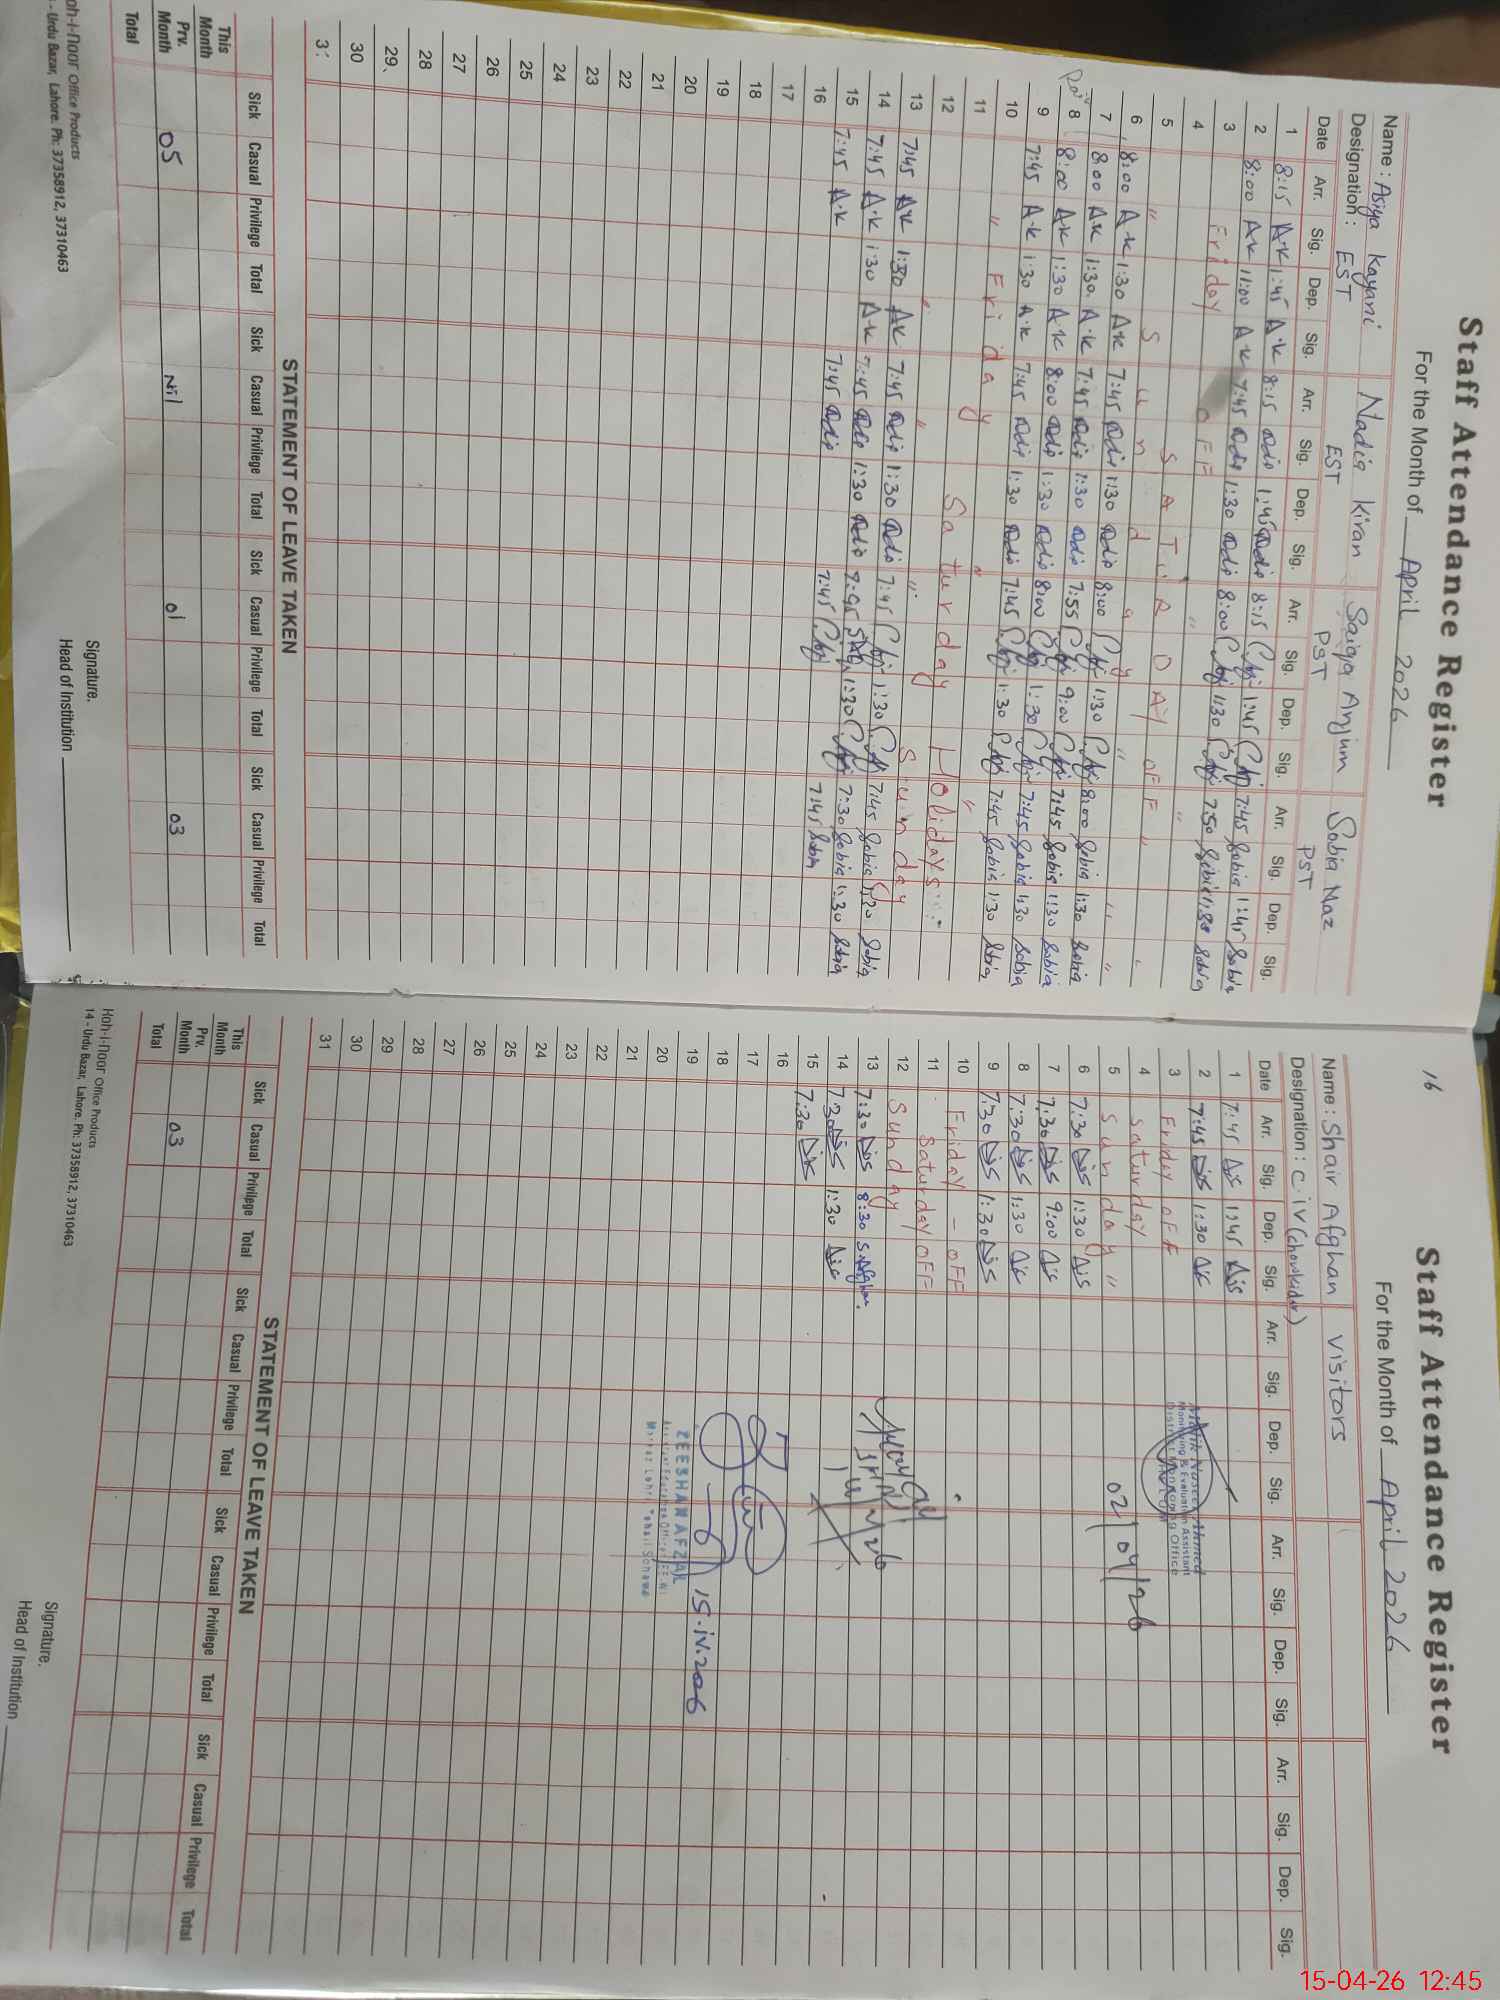 Staff Attendance Register
For the Month of April 2026
Name : Asiya Kayani Nadia Kiran Saiqa Anjum Sobia Naz
Designation : EST EST PST PST
Date Arr. Sig. Dep. Sig. Arr. Sig. Dep. Sig. Arr. Sig. Dep. Sig. Arr. Sig. Dep. Sig.
1 8:15 A.K 1:45 A.K 8:15 1:45 8:15 1:45 7:45 Sobia 1:45 Sobia
2 8:00 A.K 11:00 A.K 7:45 1:30 8:00 1:30 7:50 Sobia 1:30 Sobia
3 Friday OFF
4 " SATURDAY OFF "
5 " Sunday "
6 8:00 A.K 1:30 A.K 7:45 1:30 8:00 1:30 8:00 Sobia 1:30 Sobia
7 8:00 A.K 1:30 A.K 7:45 1:30 7:55 9:00 7:45 Sobia 1:30 Sobia
8 8:00 A.K 1:30 A.K 8:00 1:30 8:00 1:30 7:45 Sobia 1:30 Sobia
9 7:45 A.K 1:30 A.K 7:45 1:30 7:45 1:30 7:45 Sobia 1:30 Sobia
10 " Friday " "
11 Saturday Holidays
12 " " " Sunday
13 7:45 A.K 1:30 A.K 7:45 1:30 7:45 1:30 7:45 Sobia 1:30 Sobia
14 7:45 A.K 1:30 A.K 7:45 1:30 7:45 1:30 7:30 Sobia 1:30 Sobia
15 7:45 A.K 7:45 7:45 7:45 Sobia
16
17
18
19
20
21
22
23
24
25
26
27
28
29
30
STATEMENT OF LEAVE TAKEN
Sick Casual Privilege Total Sick Casual Privilege Total Sick Casual Privilege Total Sick Casual Privilege Total
This Month
Prv. Month 05 Nil 01 03
Total
Signature.
Head of Institution
Office Products
Urdu Bazar, Lahore. Ph: 37358912, 37310463
16
Staff Attendance Register
For the Month of April 2026
Name : Shair Afghan Visitors
Designation : C.IV (Chowkidar)
Date Arr. Sig. Dep. Sig. Arr. Sig. Dep. Sig. Arr. Sig. Dep. Sig. Arr. Sig. Dep. Sig.
1 7:45 1:45
2 7:45 1:30
3 Friday OFF
4 Saturday
5 Sunday "
6 7:30 1:30
7 7:30 9:00
8 7:30 1:30
9 7:30 1:30
10 Friday - OFF
11 Saturday OFF
12 Sunday
13 7:30 8:30 S.Afghan.
14 7:30 1:30
15 7:30
16
17
18
19
20
21
22
23
24
25
26
27
28
29
30
31
Monitoring & Evaluation Assistant
District Monitoring Office
02/04/26
ZEESHAN AFZAL
15.iv.2026
STATEMENT OF LEAVE TAKEN
Sick Casual Privilege Total Sick Casual Privilege Total Sick Casual Privilege Total Sick Casual Privilege Total
This Month
Prv. Month 03
Total
Signature.
Head of Institution
Koh-i-noor Office Products
14 - Urdu Bazar, Lahore. Ph: 37358912, 37310463
15-04-26 12:45